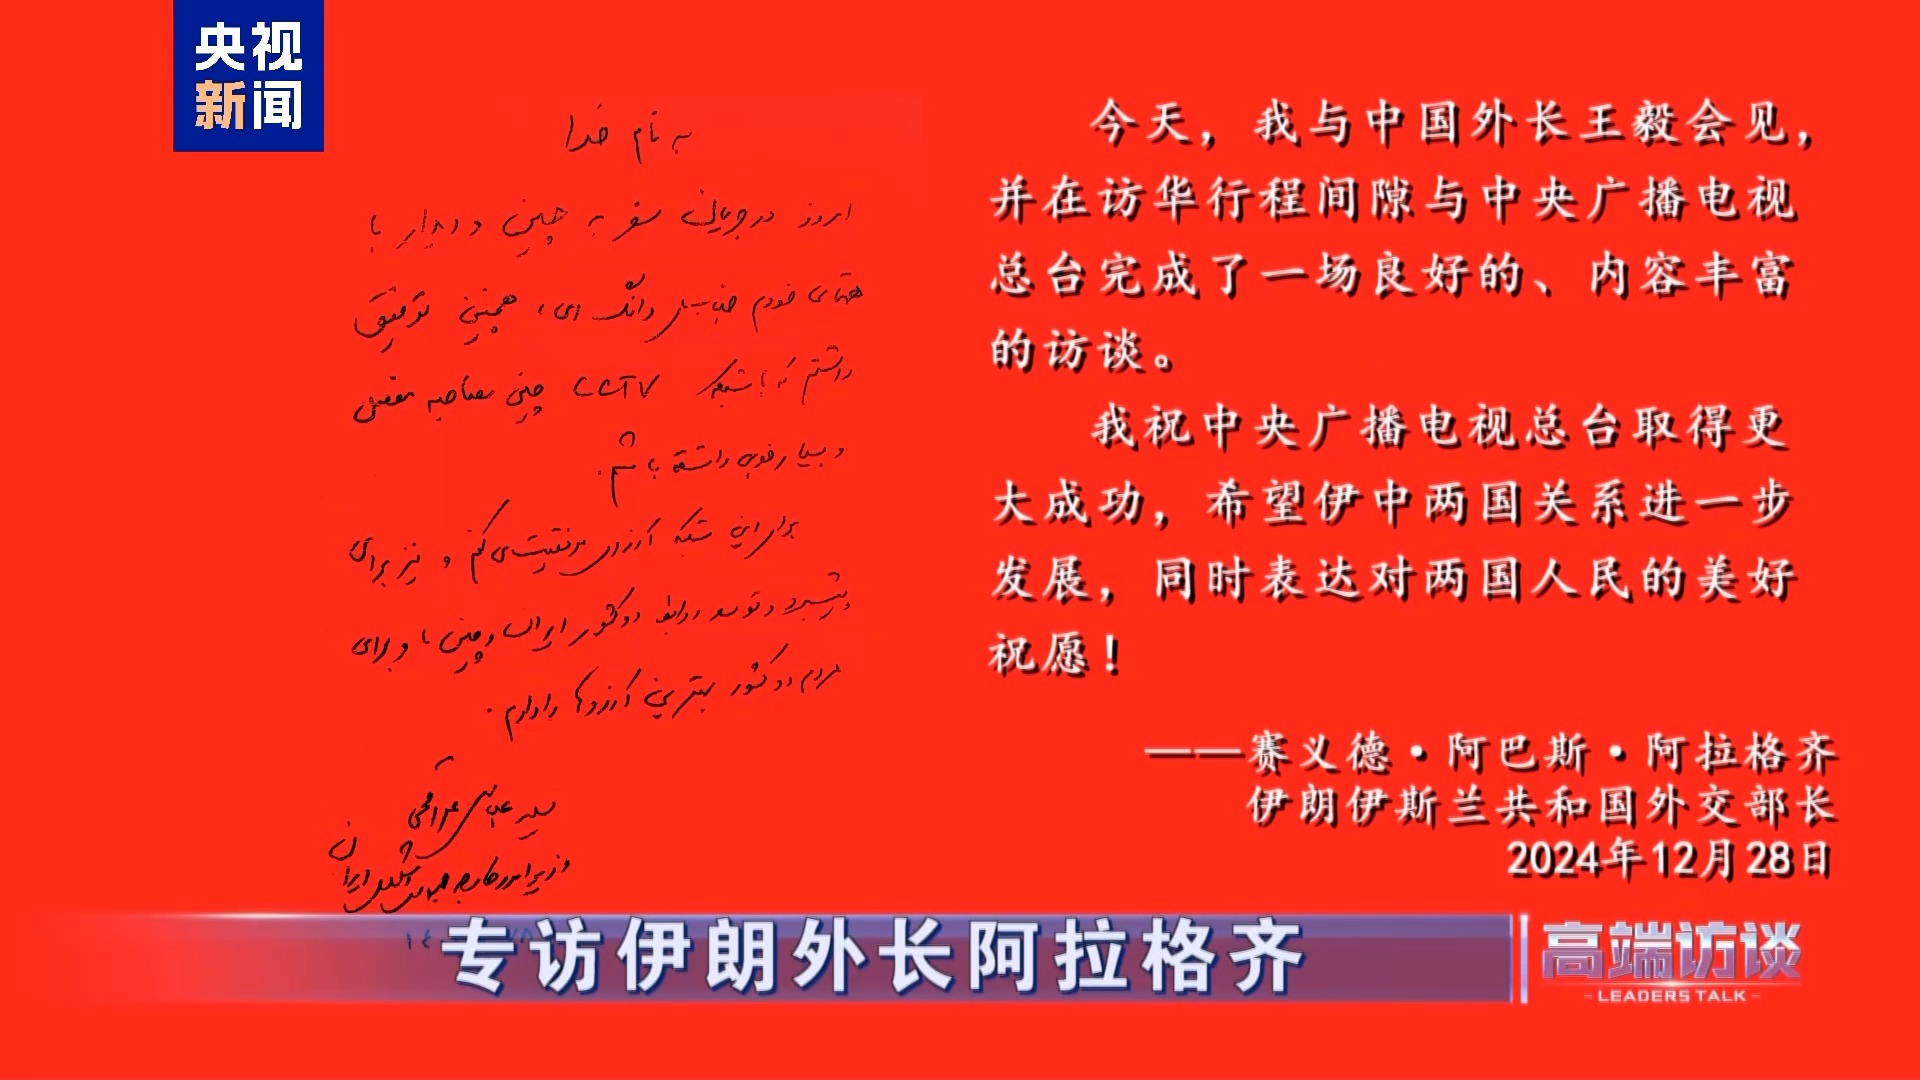 央视
新闻
به نام خدا
امروز در جریان سفر به چین و دیدار با
همتای خودم جناب آقای وانگ ای، همچنین توفیق
داشتم که با شبکه CCTV چین مصاحبه مفصل
و بسیار خوبی داشته باشم.
برای این شبکه آرزوی موفقیت می کنم و نیز برای
پیشبرد و توسعه روابط دو کشور ایران و چین و برای
مردم دو کشور بهترین آرزوها را دارم.
سید عباس عراقچی
وزیر امور خارجه جمهوری اسلامی ایران
今天，我与中国外长王毅会见，
并在访华行程间隙与中央广播电视
总台完成了一场良好的、内容丰富
的访谈。
我祝中央广播电视总台取得更
大成功，希望伊中两国关系进一步
发展，同时表达对两国人民的美好
祝愿！
——赛义德·阿巴斯·阿拉格齐
伊朗伊斯兰共和国外交部长
2024年12月28日
专访伊朗外长阿拉格齐
高端访谈
LEADERS TALK